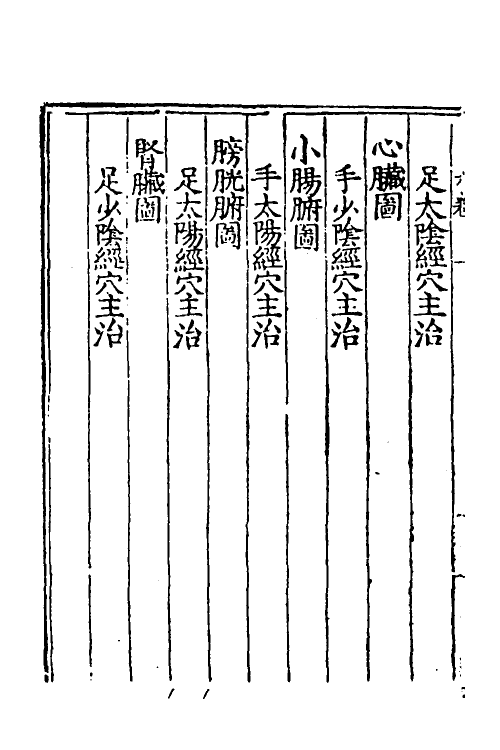 足太陰經穴主治
心臟圖
手少陰經穴主治
小腸腑圖
手太陽經穴主治
膀胱腑圖
足太陽經穴主治
腎臟圖
足少陰經穴主治